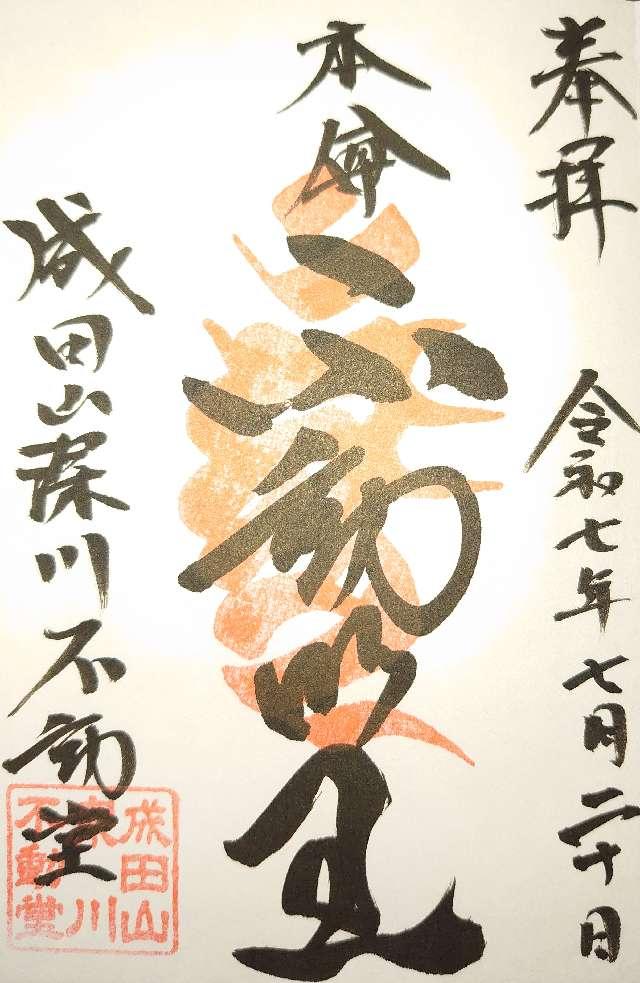 奉拝
令和七年七月二十日
本尊
不動明王
成田山深川不動堂
成田山
深川
不動堂